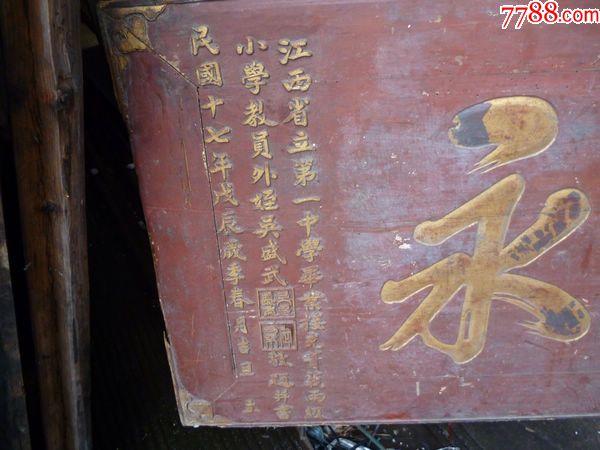 7788.com
永
江西省立第一中學畢業
小學教員外姪吳盛武敬題并書
民國十七年戊辰歲季春月吉旦